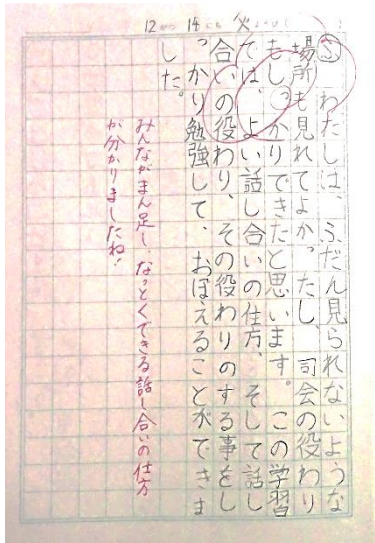 12 14 火
ふ わたしは、ふだん見られないような
場所も見れてよかったし、司会の役わり
もしっかりできたと思います。この学習
では、よい話し合いの仕方、そして話し
合いの役わり、その役わりのする事をし
っかり勉強して、おぼえることができま
した。
みんながまん足し、なっとくできる話し合いの仕方
が分かりましたね!